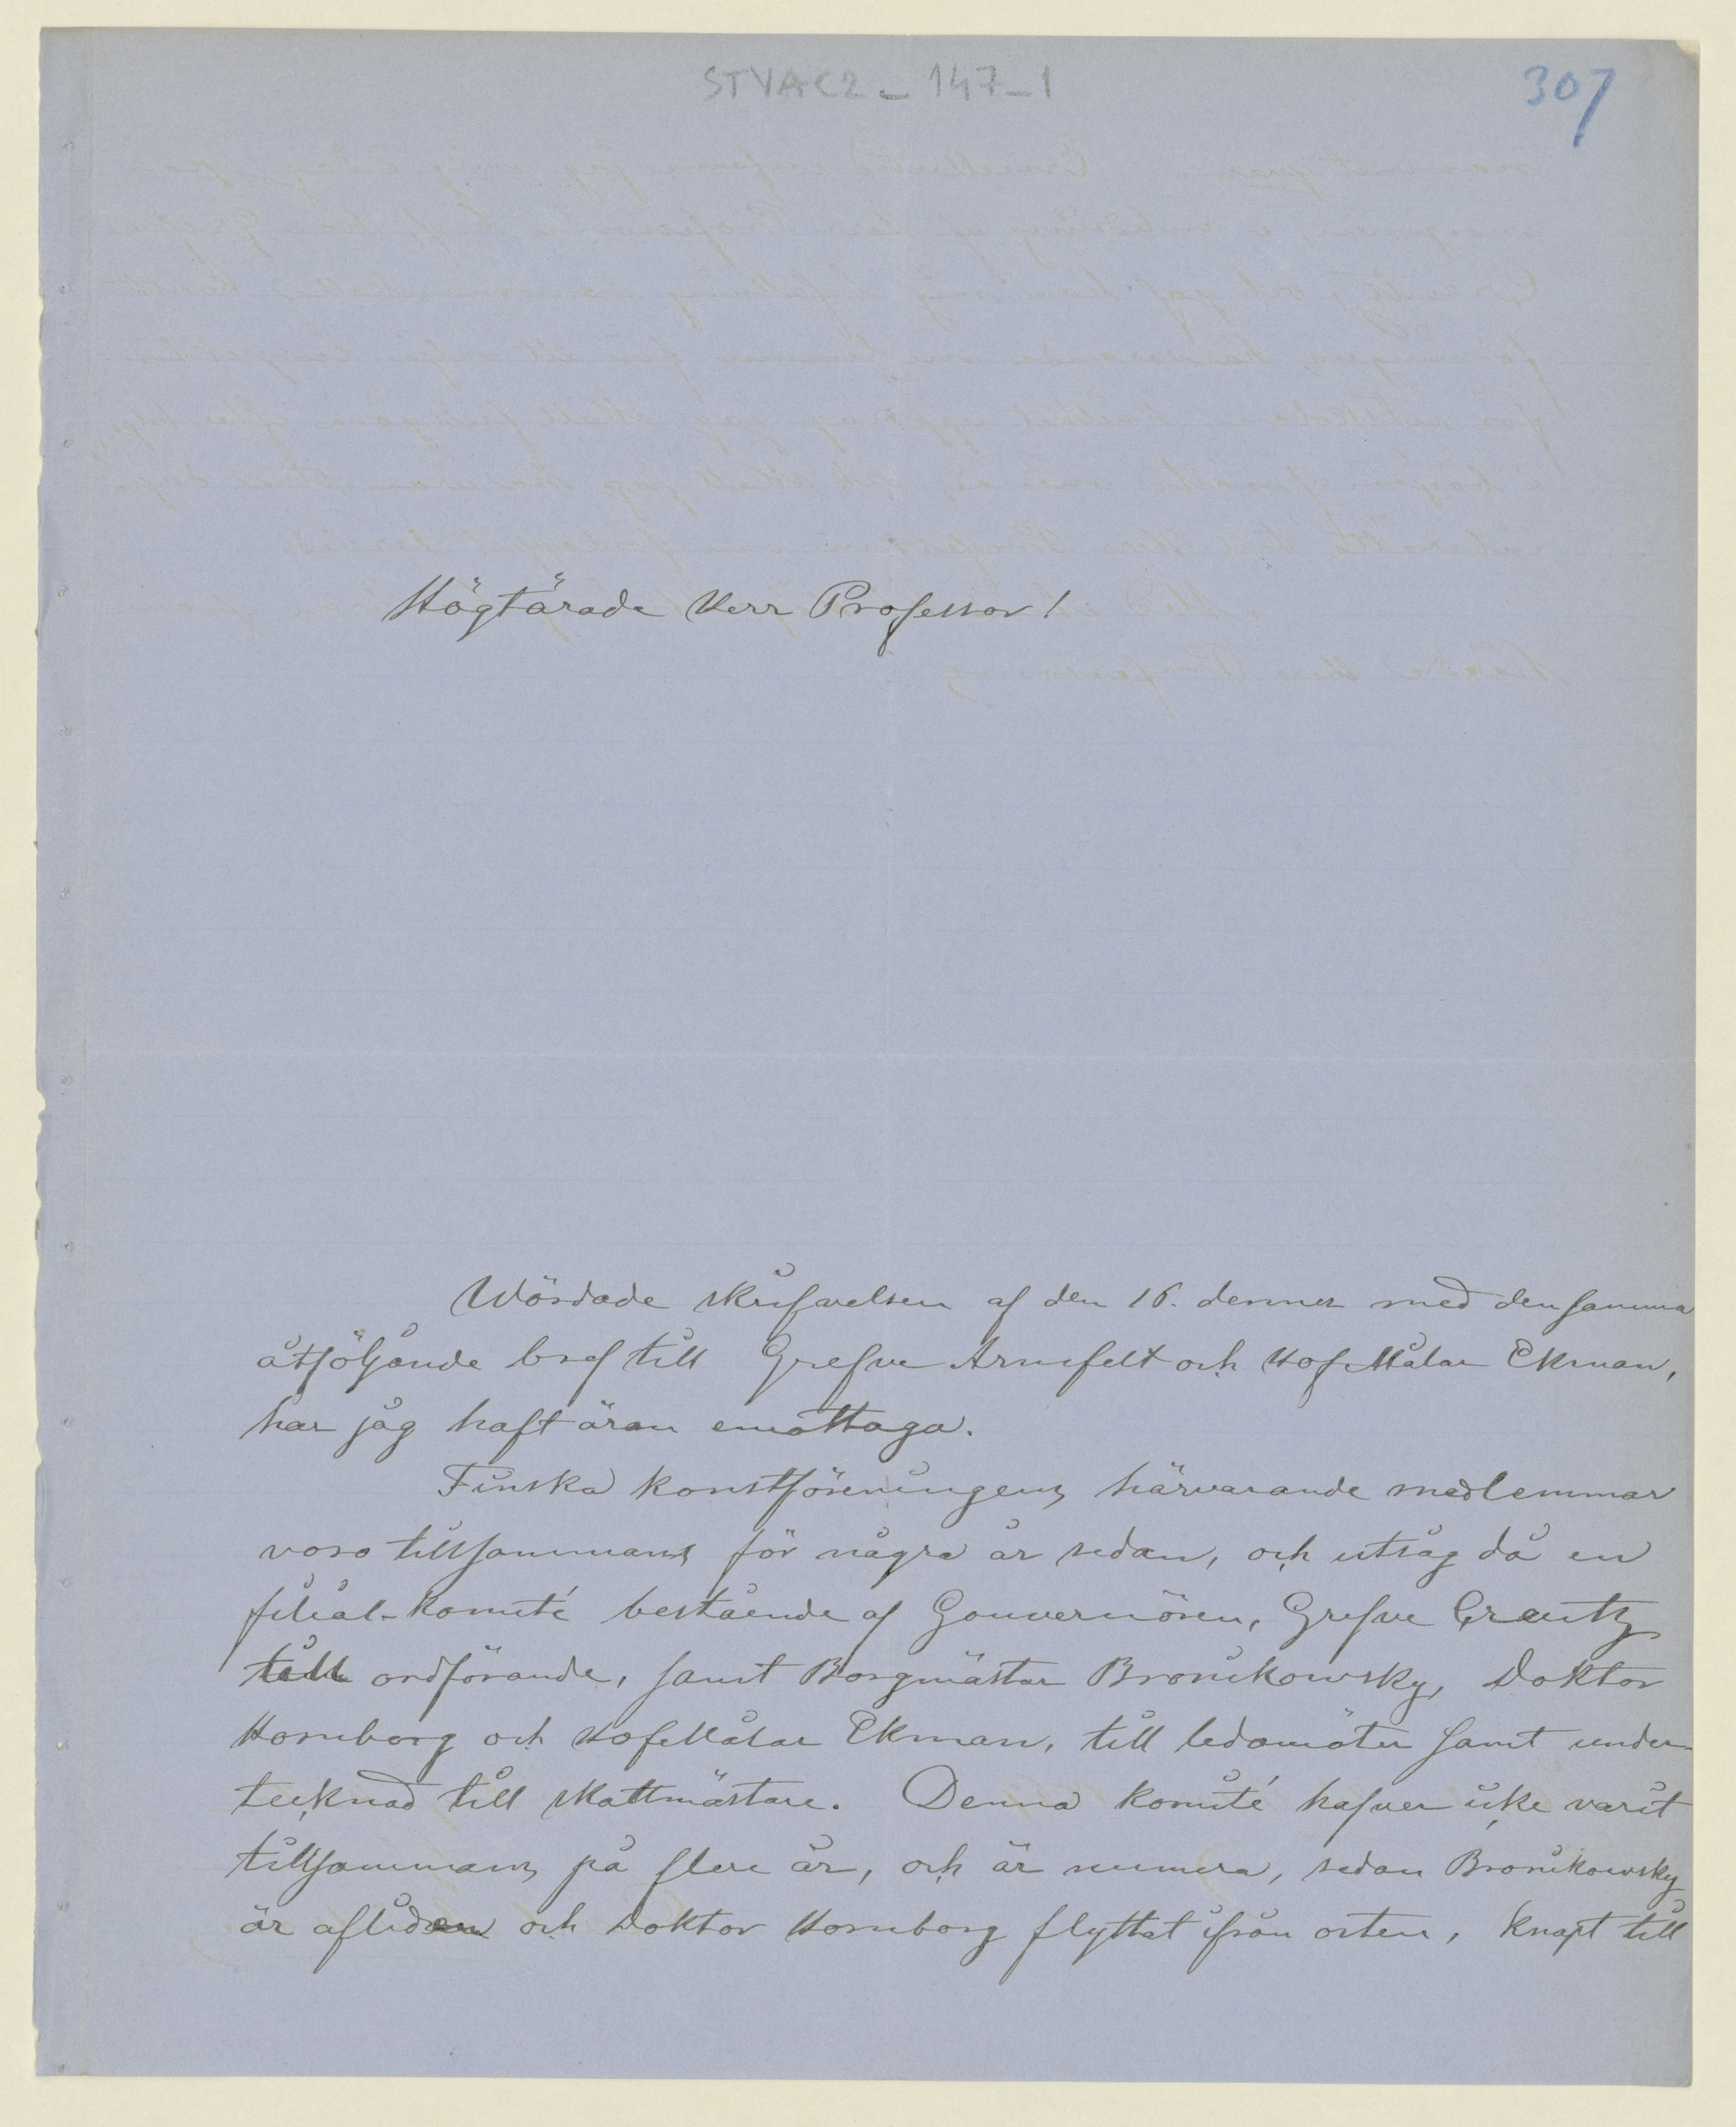 STYAC2_147_1
307
Högtärade Herr Professor!
Wördade skrifvelsen af den 16. dennes med densamma
åtföljande bref till Grefve Armfelt och HofMålar Ekman,
har jag haft äran emottaga.
Finska konstföreningens härvarande medlemmar
voro tillsammans för några år sedan, och utsåg då en
filial-komité bestående af Gouvernören, Grefve Creutz
till ordförande, samt Borgmästar Bronikowsky, Doktor
Hornborg och HofMålar Ekman, till ledamöter samt under-
tecknad till skattmästare. Denna komité hafver icke varit
tillsammans på flere år, och är numera, sedan Bronikowsky
är afliden och Doktor Hornborg flyttat ifrån orten, knapt till